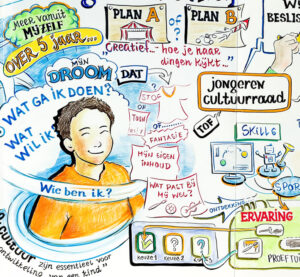 Meer vanuit
MYZELF
OVER 5 jaar...
PLAN A
of?
PLAN B
BESLIS
Creatief... hoe je naar
dingen kijkt..."
MIJN
DROOM DAT
WAT GA IK DOEN?
WAT
WIL IK?
Wie ben ik?
STOF
OF
OF
FANTASIE
MIJN EIGEN
INHOUD
WAT PAST BIJ
MIJ WEL?
jongeren
cultuurraad
TOF
SKILLS
SPOR
ONTDEKKING
ERVARING
KEUZE 1
KEUZE 2
PROEFTU
CULTUUR zijn essentieel voor
ontwikkeling van een kind"